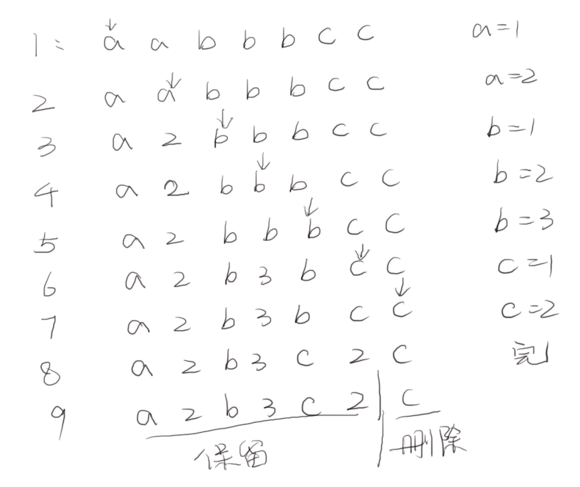 1: a a b b b c c a=1
2 a a b b b c c a=2
3 a 2 b b b c c b=1
4 a 2 b b b c c b=2
5 a 2 b b b c c b=3
6 a 2 b 3 b c c c=1
7 a 2 b 3 b c c c=2
8 a 2 b 3 c 2 c 完
9 a 2 b 3 c 2 c
保留 删除